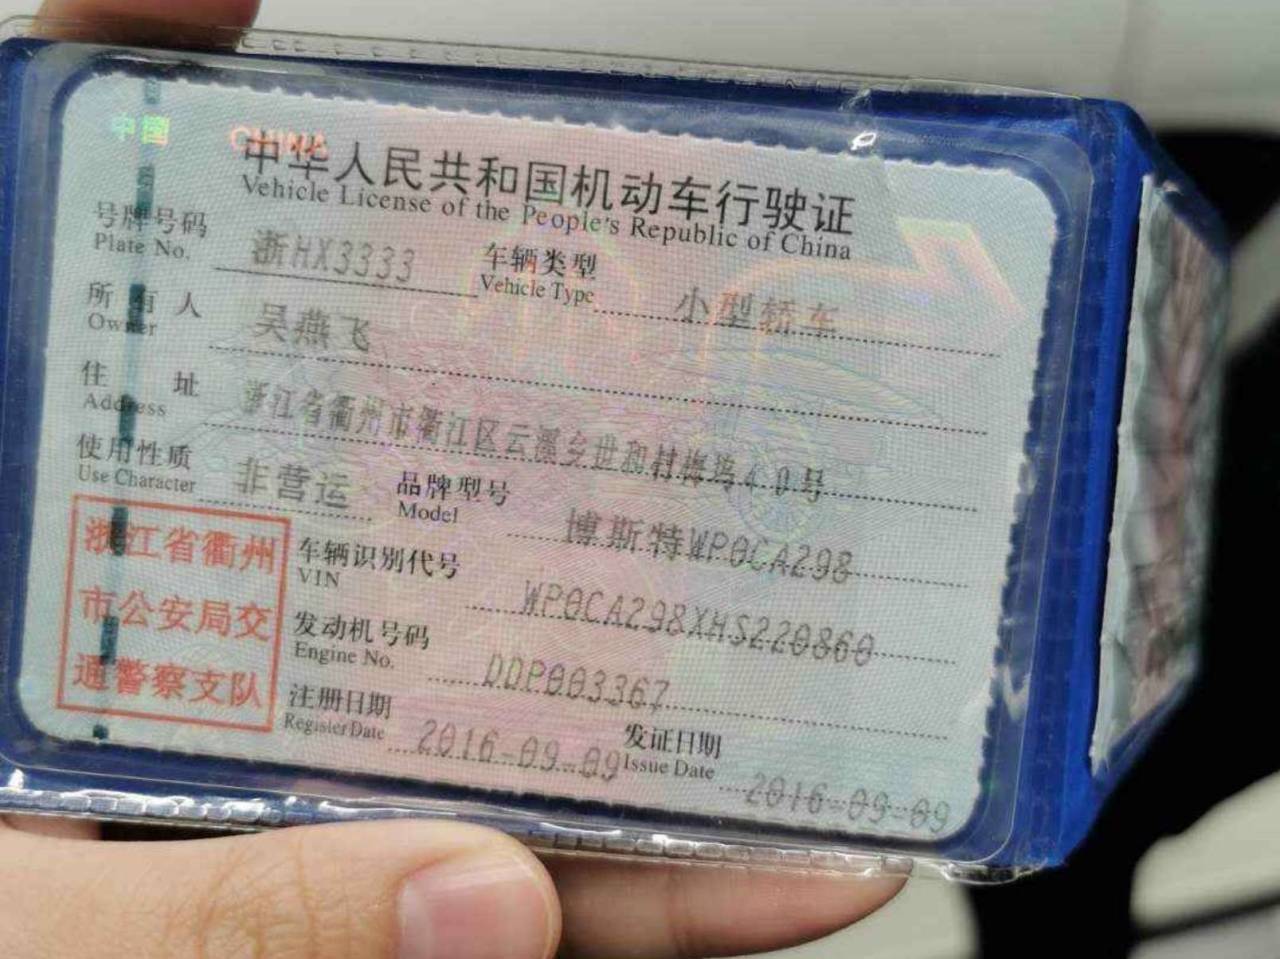 中国 CHINA
中华人民共和国机动车行驶证
Vehicle License of the People's Republic of China
号牌号码 浙HX3333 车辆类型 小型轿车
Plate No. Vehicle Type
所有人 吴燕飞
Owner
住址 浙江省衢州市衢江区云溪乡世和村梅坞40号
Address
使用性质 非营运 品牌型号 博斯特WP0CA298
Use Character Model
浙江省衢州
市公安局交
通警察支队
车辆识别代号 WP0CA298XHS220860
VIN
发动机号码 DDP003367
Engine No.
注册日期 2016-09-09 发证日期 2016-09-09
Register Date Issue Date